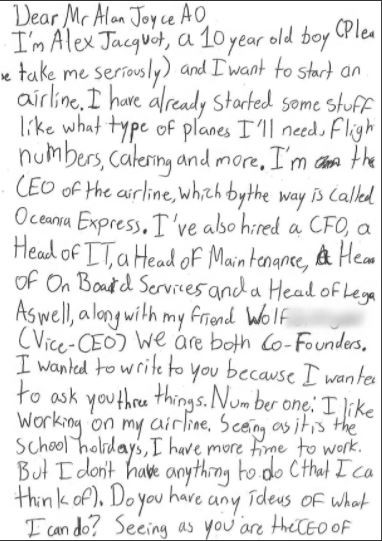 Dear Mr Alan Joyce AO
I'm Alex Jacquot, a 10 year old boy (Plea
se take me seriously) and I want to start an
airline. I have already started some stuff
like what type of planes I'll need, fligh
numbers, catering and more. I'm the
CEO of the airline, which by the way is called
Oceania Express. I've also hired a CFO, a
Head of IT, a Head of Maintenance, A Hea
of On Board Services and a Head of Lega
Aswell, along with my friend Wolf
(Vice-CEO) we are both Co-Founders.
I wanted to write to you because I wante
to ask you three things. Number one: I like
working on my airline. Seeing as it is the
school holidays, I have more time to work.
But I don't have anything to do (that I ca
think of). Do you have any ideas of what
I can do? Seeing as you are the CEO of